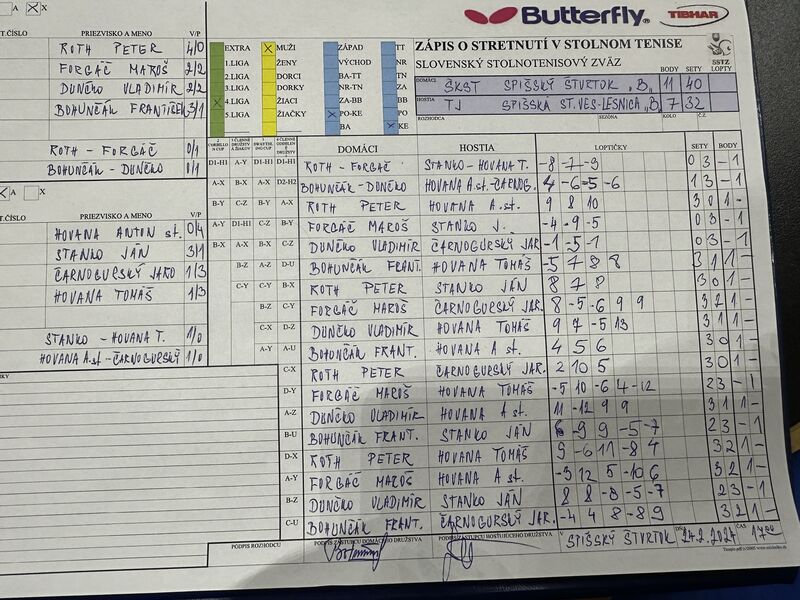 A X
Butterfly
TIBHAR
T.ČÍSLO PRIEZVISKO A MENO V/P
ROTH PETER 4/0
FORGÁČ MAROŠ 2/2
DUNČKO VLADIMÍR 2/2
BOHUNČÁK FRANTIŠEK 3/1
ROTH - FORGÁČ 0/1
BOHUNČÁK - DUNČKO 0/1
EXTRA X MUŽI ZÁPAD TT
1.LIGA ŽENY VÝCHOD NR
2.LIGA DORCI BA-TT TN
3.LIGA DORKY NR-TN ZA
4.LIGA ŽIACI ZA-BB BB
5.LIGA ŽIAČKY PO-KE PO
BA KE
ZÁPIS O STRETNUTÍ V STOLNOM TENISE
SLOVENSKÝ STOLNOTENISOVÝ ZVÄZ
SSTZ
BODY SETY LOPTY
DOMÁCI ŠKST SPIŠSKÝ ŠTVRTOK "B" 11 40
HOSTIA TJ SPIŠSKÁ ST.VES-LESNICA "B" 7 32
ROZHODCA SEZÓNA KOLO Č.Z
DOMÁCI HOSTIA LOPTIČKY SETY BODY
D1-H1 A-Y D1-H1 D1-H1 ROTH - FORGÁČ STANKO - HOVANA T. -8 -7 -9 0 3 - 1
A-X B-X A-X D2-H2 BOHUNČÁK - DUNČKO HOVANA A.st.-ČARNOG. 4 -6 -5 -6 1 3 - 1
B-Y C-Z B-Y A-X ROTH PETER HOVANA A.st. 9 8 10 3 0 1 -
A-Y D1-H1 C-Z B-Y FORGÁČ MAROŠ STANKO J. -4 -9 -5 0 3 - 1
B-X A-X B-X C-Z DUNČKO VLADIMÍR ČARNOGURSKÝ JAR. -1 -5 -1 0 3 - 1
B-Z A-Z D-U BOHUNČÁK FRANT. HOVANA TOMÁŠ -5 7 8 8 3 1 1 -
C-Y C-Y B-X ROTH PETER STANKO JÁN 8 7 8 3 0 1 -
B-Z C-Y FORGÁČ MAROŠ ČARNOGURSKÝ JAR. 8 -5 -6 9 9 3 2 1 -
C-X D-Z DUNČKO VLADIMÍR HOVANA TOMÁŠ 9 7 -5 13 3 1 1 -
A-Y A-U BOHUNČÁK FRANT. HOVANA A st. 4 5 6 3 0 1 -
C-X ROTH PETER ČARNOGURSKÝ JAR. 2 10 5 3 0 1 -
D-Y FORGÁČ MAROŠ HOVANA TOMÁŠ -5 10 -6 4 -12 2 3 - 1
A-Z DUNČKO VLADIMÍR HOVANA A st. 11 -12 9 9 3 1 1 -
B-U BOHUNČÁK FRANT. STANKO JÁN 6 -9 9 -5 -7 2 3 - 1
D-X ROTH PETER HOVANA TOMÁŠ 9 -6 11 -8 4 3 2 1 -
A-Y FORGÁČ MAROŠ HOVANA A st. -3 12 5 -10 6 3 2 1 -
B-Z DUNČKO VLADIMÍR STANKO JÁN 8 8 -8 -5 -7 2 3 - 1
C-U BOHUNČÁK FRANT. ČARNOGURSKÝ JAR. -4 4 8 -8 9 3 2 1 -
A X
T.ČÍSLO PRIEZVISKO A MENO V/P
HOVANA ANTON st. 0/4
STANKO JÁN 3/1
ČARNOGURSKÝ JARO 1/3
HOVANA TOMÁŠ 1/3
STANKO - HOVANA T. 1/0
HOVANA A.st - ČARNOGURSKÝ 1/0
PODPIS ROZHODCU PODPIS ZÁSTUPCU DOMÁCEHO DRUŽSTVA PODPIS ZÁSTUPCU HOSŤUJÚCEHO DRUŽSTVA V SPIŠSKÝ ŠTVRTOK DŇA 24.2.2024 ČAS 17 00